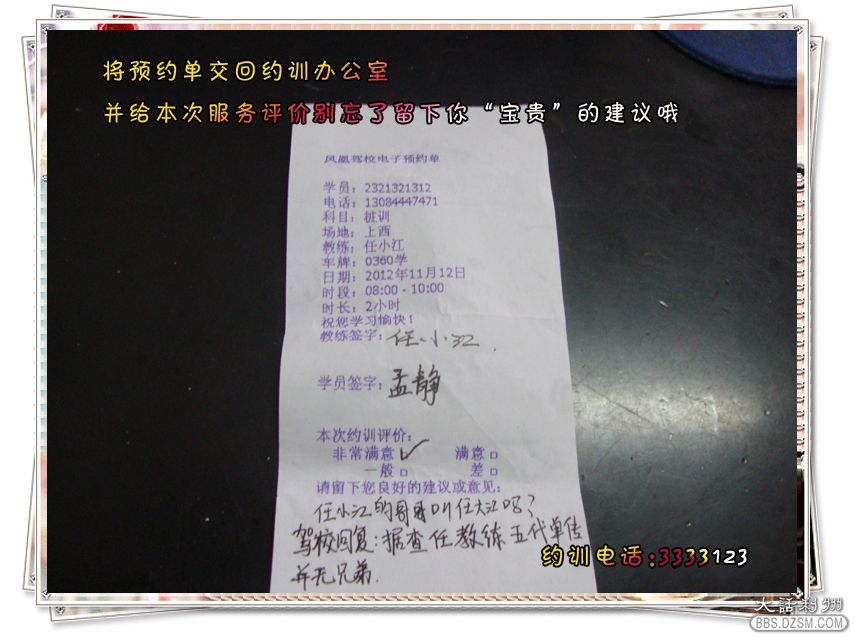 将预约单交回约训办公室
并给本次服务评价别忘了留下你“宝贵”的建议哦
凤凰驾校电子预约单
学员：2321321312
电话：13084447471
科目：桩训
场地：上西
教练：任小江
车牌：0360学
日期：2012年11月12日
时段：08:00 - 10:00
时长：2小时
祝您学习愉快！
教练签字：任小江.
学员签字：孟静
本次约训评价：
非常满意☑ 满意□
一般□ 差□
请留下您良好的建议或意见：
任小江的哥哥叫任大江吗？
驾校回复：据查任教练五代单传
并无兄弟.
约训电话:3333123
BBS.DZSM.COM